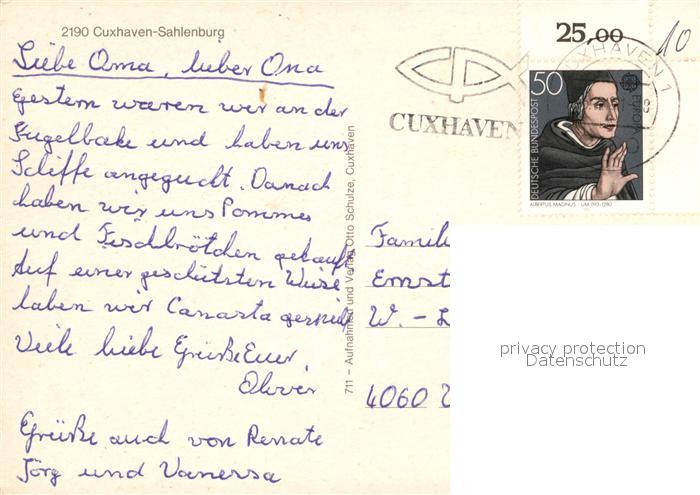 2190 Cuxhaven-Sahlenburg
Liebe Oma, lieber Opa
Gestern waren wir an der
Kugelbake und haben uns
Schiffe angeguckt. Danach
haben wir uns Pommes
und Fischbrötchen gekauft
Auf einer geschützten Wiese
haben wir Canasta gespielt
Viele liebe Grüße Euer
Oliver
Grüße auch von Renate
Jörg und Vanessa
711 – Aufnahmen und Verlag Otto Schulze, Cuxhaven
25,00
10
CUXHAVEN
CUXHAVEN 1
50
DEUTSCHE BUNDESPOST
EUROPA
ALBERTUS MAGNUS · UM 1193-1280
Famil
Ernst
W. - L
4060
privacy protection
Datenschutz